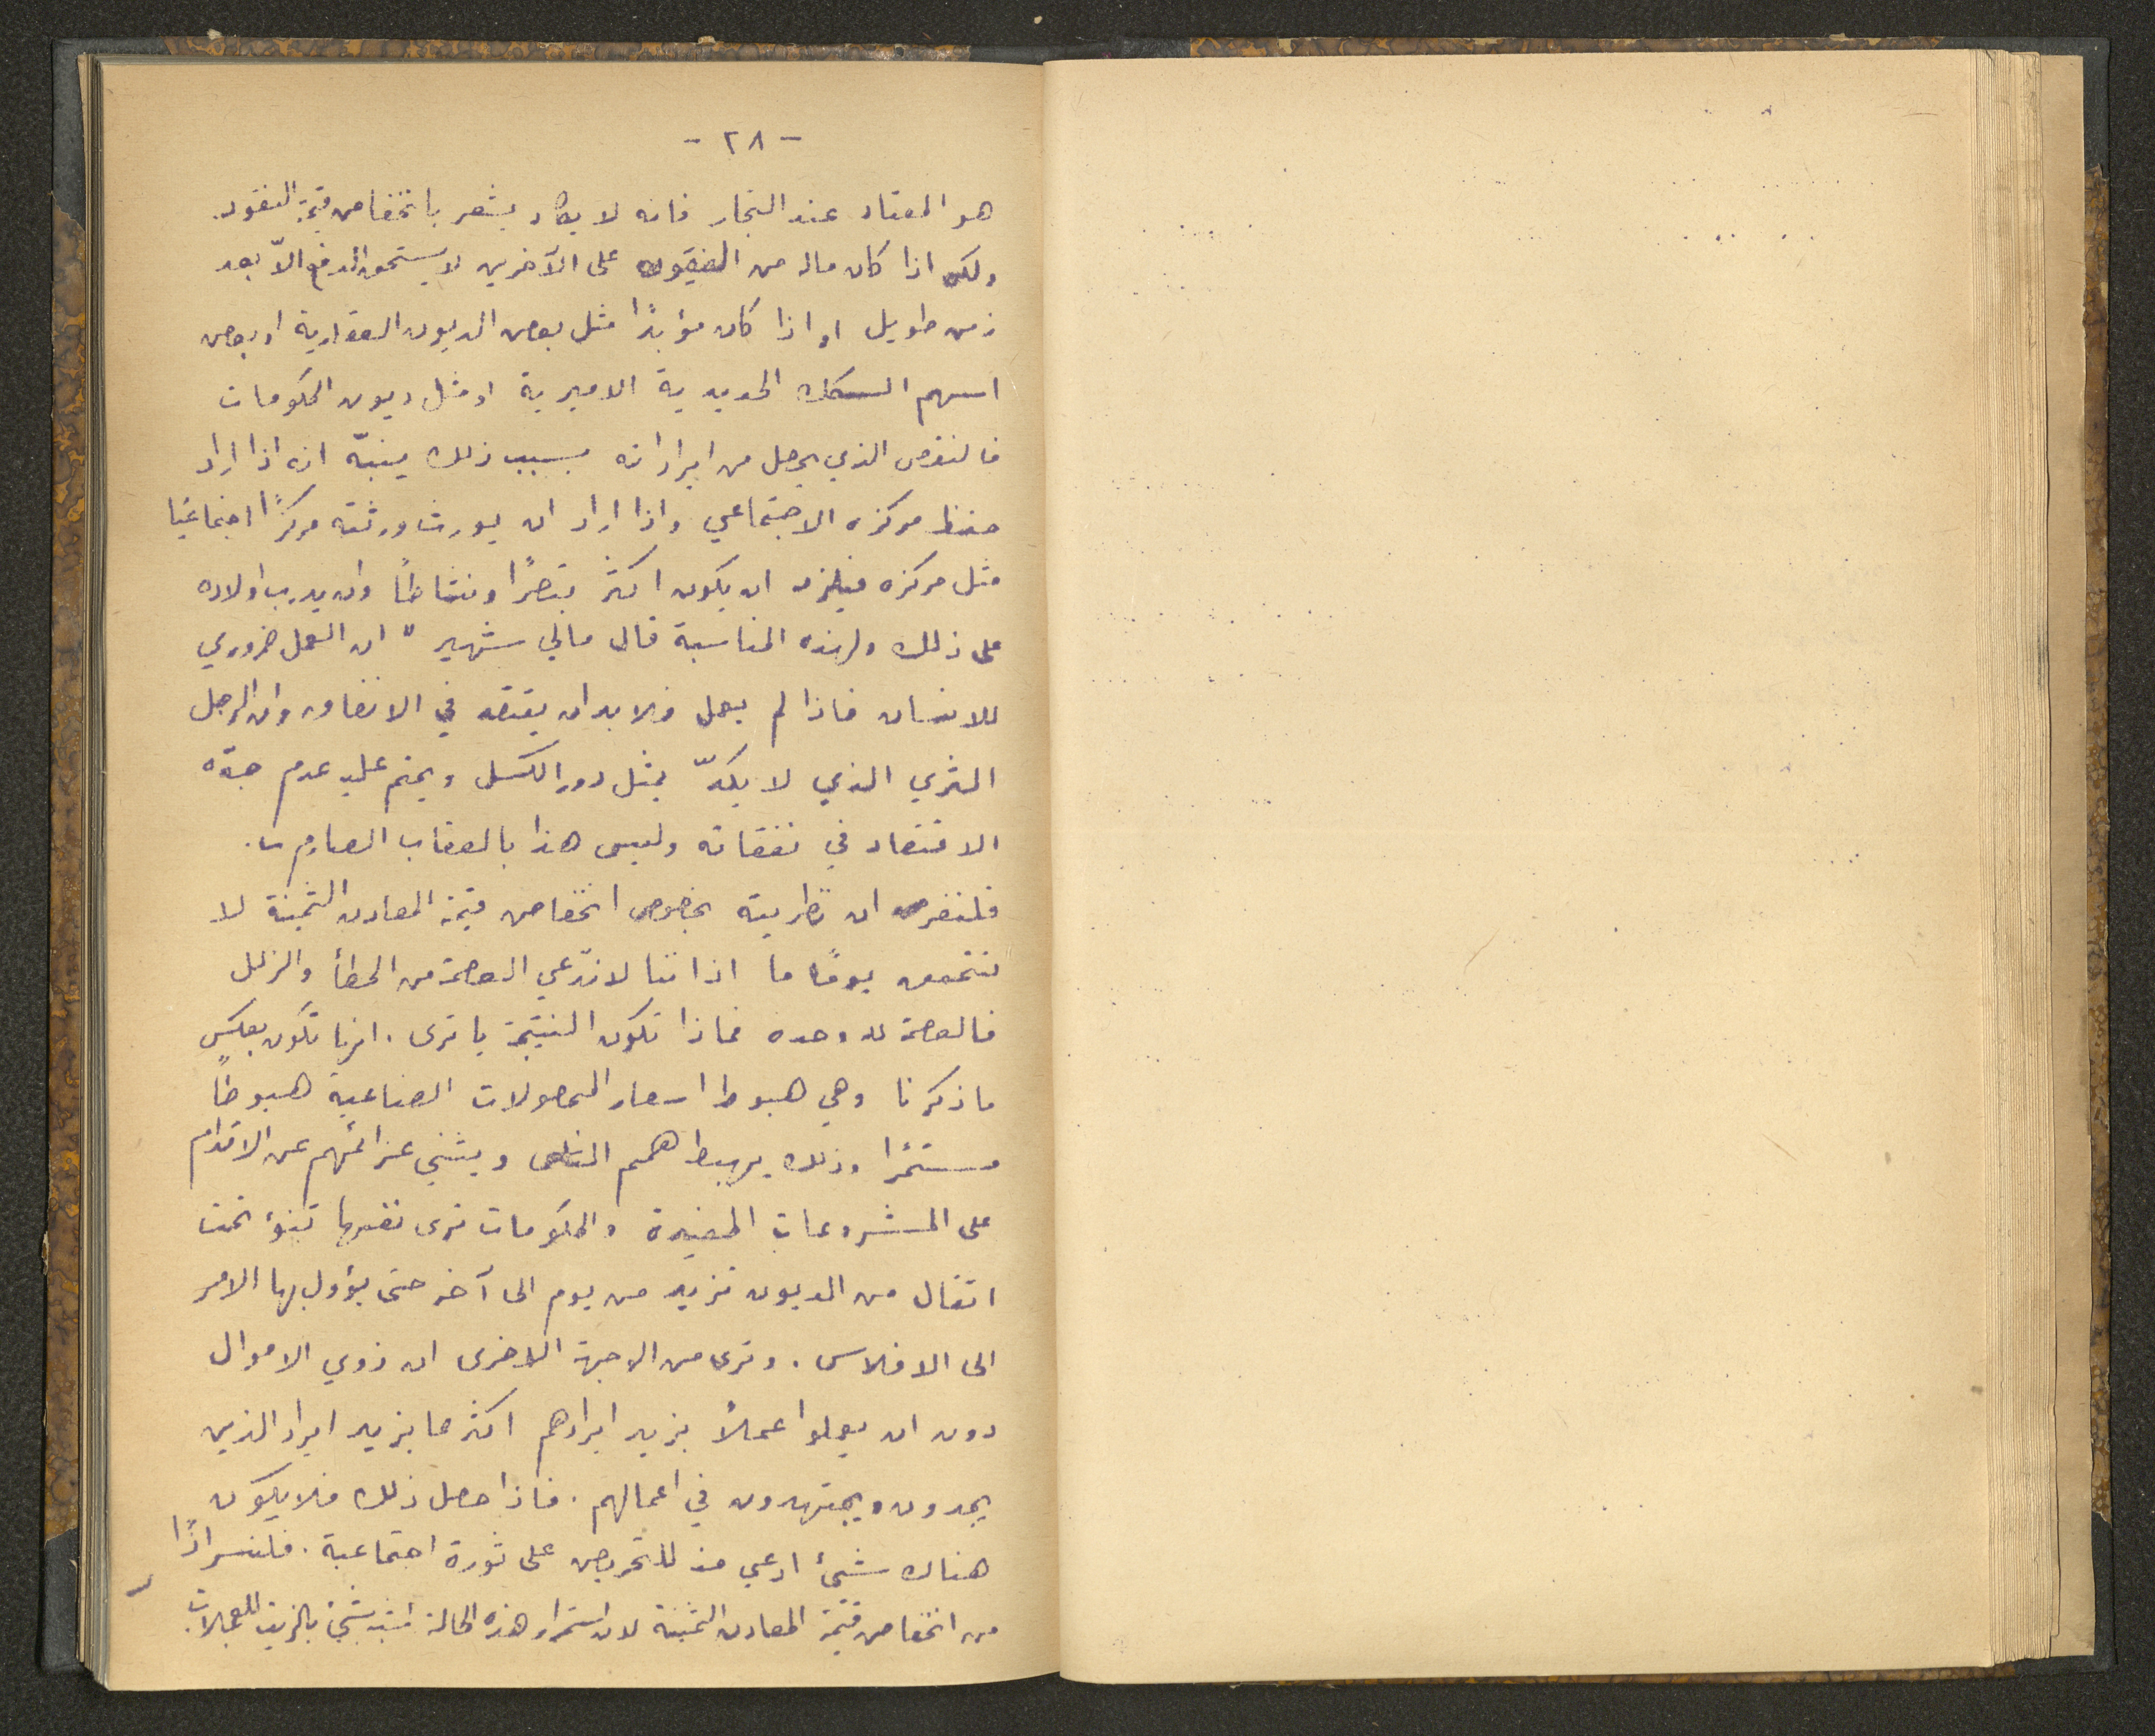 - ٢٨ -
هو المعتاد عند التجار فانه لا يكاد يشعر بانخفاض قيمة النقود.
ولكن اذا كان ماله من الحقوق على الآخرين لا يستحق الدفع الّا بعد
زمن طويل او اذا كان مؤبدًا مثل بعض الديون العقارية او بعض
اسهم السكك الحديدية الاميرية او مثل ديون الحكومات
فالنقص الذي يحصل من ايراداته بسبب ذلك ينبّه انه اذا اراد
حفظ مركزه الاجتماعي واذا اراد ان يورث ورثته مركزًا اجتماعيًا
مثل مركزه فيلزم ان يكون اكثر تبصرًا ونشاطًا وان يدرب اولاده
على ذلك ولهذه المناسبة قال مالي شهير " ان العمل ضروري
للانسان فاذا لم يعمل فلا بد ان يقتصد في الانفاق وان الرجل
المثري الذي لا يكدّ يمثل دور الكسل ويحتم عليه عدم جدّه
الاقتصاد في نفقاته وليس هذا بالعقاب الصارم ".
فلنفرض ان نظريته بخصوص انخفاض قيمة المعادن الثمينة لا
تتحقق يومًا ما اذ اننا لا ندّعي العصمة من الخطأ والزلل
فالعصمة لله وحده فماذا تكون النتيجة يا ترى . انها تكون بعكس
ما ذكرنا وهي هبوط اسعار المحصولات الصناعية هبوطًا
مستمرًا وذلك يهبط همم الناس ويثني عزائمهم عن الاقدام
على المشروعات المفيدة والحكومات ترى نفسها تنوء تحت
اثقال من الديون تزيد من يوم الى آخر حتى يؤول بها الامر
الى الافلاس . وترى من الوجهة الاخرى ان ذوي الاموال
دون ان يعملوا عملًا يزيد ايرادهم اكثر مما يزيد ايراد الذين
يجدون ويجتهدون في اعمالهم . فاذا حصل ذلك فلا يكون
هناك شيئ ادعي منه للتحريض على ثورة اجتماعية . فلنسر اذًا
من انخفاض قيمة المعادن الثمينة لان استمرار هذه الحالة اشبه شيئ بالزيت للعجلات.